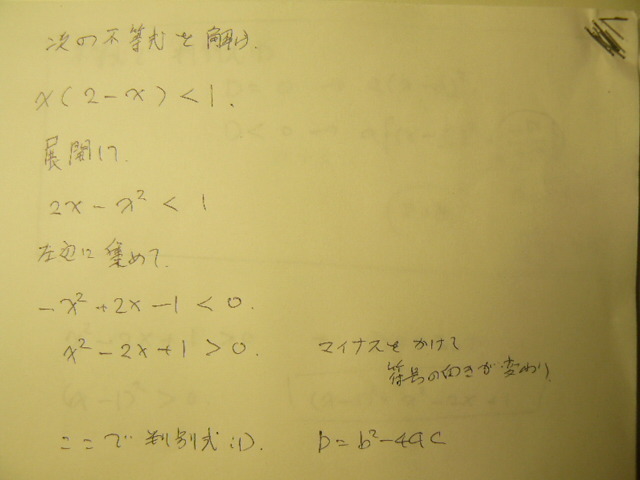 次の不等式を解け.
x(2-x)<1.
展開して.
2x-x²<1
左辺に集めて.
-x²+2x-1<0.
x²-2x+1>0. マイナスをかけて
符号の向きが変わり.
ここで判別式:D. D=b²-4ac